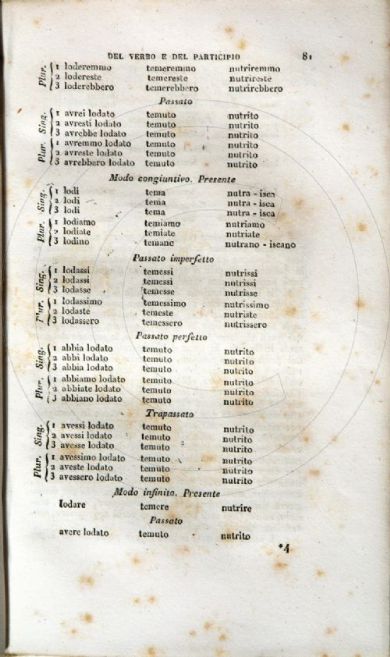 DEL VERBO E DEL PARTICIPIO 81
Plur. 1 loderemmo temeremmo nutriremmo
2 lodereste temereste nutrireste
3 loderebbero temerebbero nutrirebbero
Passato
Sing. 1 avrei lodato temuto nutrito
2 avresti lodato temuto nutrito
3 avrebbe lodato temuto nutrito
Plur. 1 avremmo lodato temuto nutrito
2 avreste lodato temuto nutrito
3 avrebbero lodato temuto nutrito
Modo congiuntivo. Presente
Sing. 1 lodi tema nutra - isca
2 lodi tema nutra - isca
3 lodi tema nutra - isca
Plur. 1 lodiamo temiamo nutriamo
2 lodiate temiate nutriate
3 lodino temano nutrano - iscano
Passato imperfetto
Sing. 1 lodassi temessi nutrissi
2 lodassi temessi nutrissi
3 lodasse temesse nutrisse
Plur. 1 lodassimo temessimo nutrissimo
2 lodaste temeste nutriste
3 lodassero temessero nutrissero
Passato perfetto
Sing. 1 abbia lodato temuto nutrito
2 abbi lodato temuto nutrito
3 abbia lodato temuto nutrito
Plur. 1 abbiamo lodato temuto nutrito
2 abbiate lodato temuto nutrito
3 abbiano lodato temuto nutrito
Trapassato
Sing. 1 avessi lodato temuto nutrito
2 avessi lodato temuto nutrito
3 avesse lodato temuto nutrito
Plur. 1 avessimo lodato temuto nutrito
2 aveste lodato temuto nutrito
3 avessero lodato temuto nutrito
Modo infinito. Presente
lodare temere nutrire
Passato
avere lodato temuto nutrito
*4